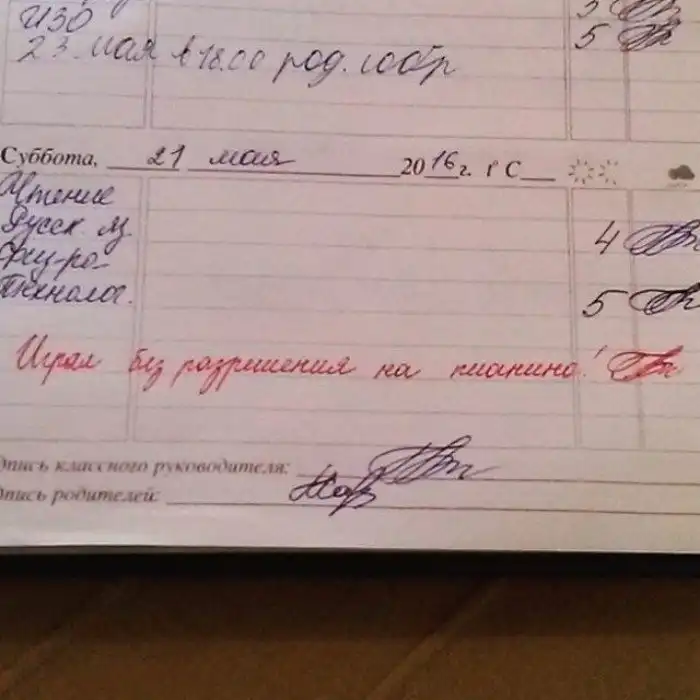 ИЗО 5
23 мая в 18.00 род. собр
Суббота, 21 мая 2016г. t° C
Чтение
Русск. яз. 4
Физ-ра
Технолог. 5
Играл без разрешения на пианино!
дпись классного руководителя:
дпись родителей: